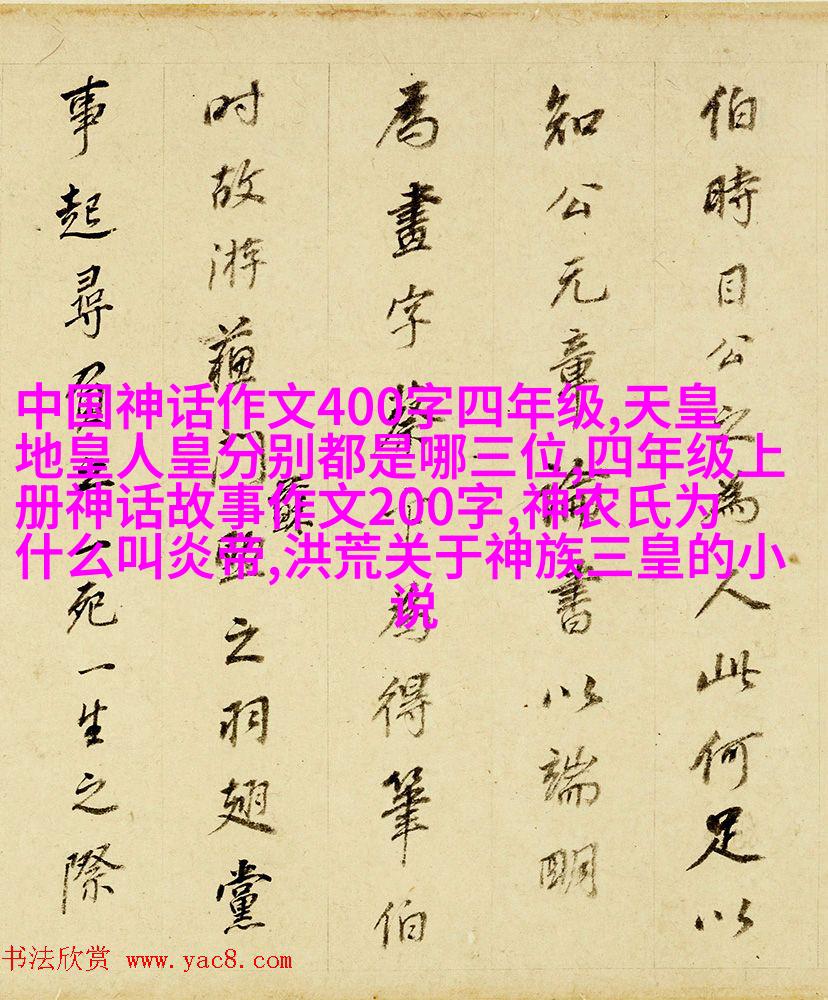 伯時目公之為人此何足以
知公元章論書以端明
為畫字蔡得筆伯
时故游蘓門蘇之羽翅黨
事起尋一死一生之際
中国神话作文400字四年级,天皇
地皇人皇分别都是哪三位,四年级上
册神话故事作文200字,神农氏为
什么叫炎帝,洪荒关于神族三皇的小
说
书法欣赏 www.yac8.com